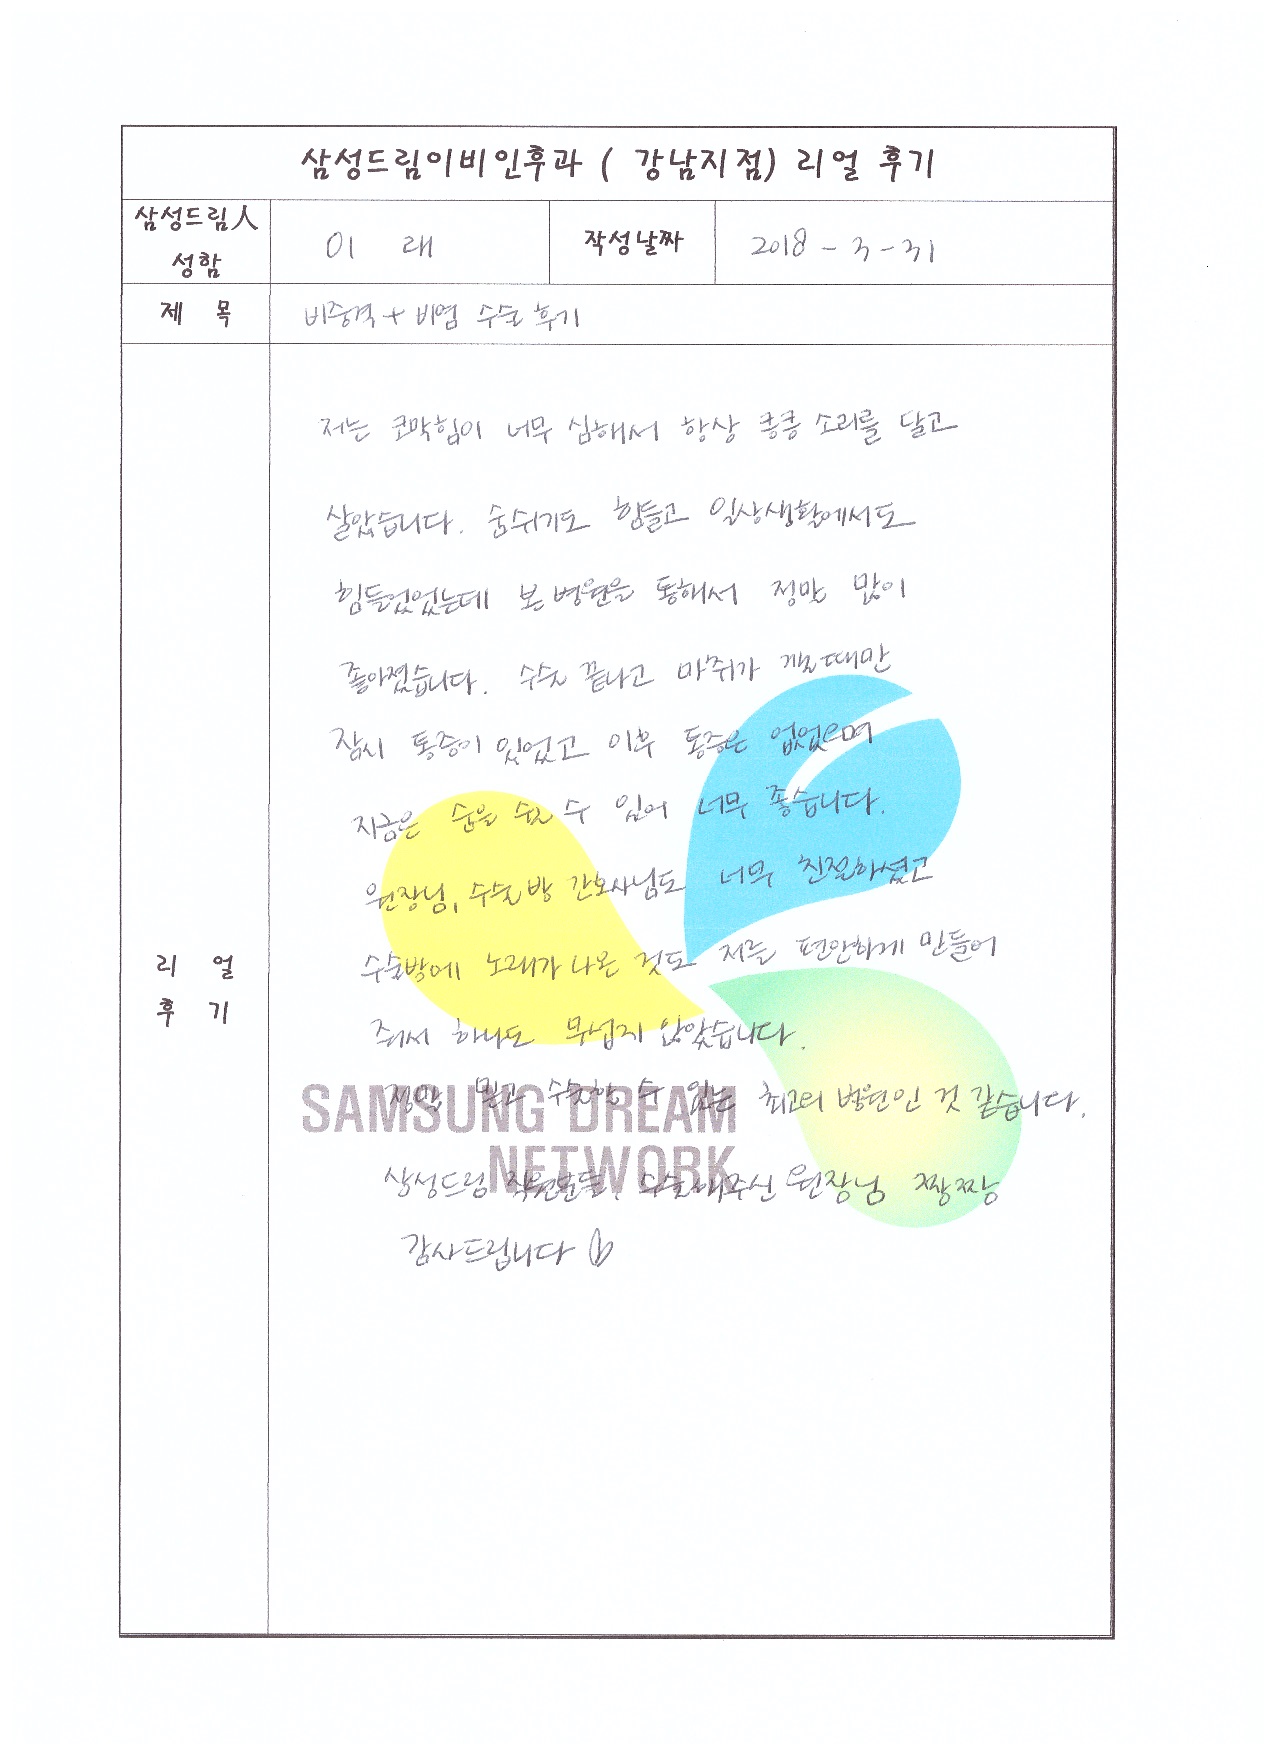 삼성드림이비인후과 ( 강남지점) 리얼 후기
삼성드림人 성함
이 래
작성날짜
2018 - 3 - 31
제 목
비중격 + 비염 수술 후기
리 얼
후 기
저는 코막힘이 너무 심해서 항상 킁킁 소리를 달고
살았습니다. 숨쉬기도 힘들고 일상생활에서도
힘들었었는데 본 병원을 통해서 정말 많이
좋아졌습니다. 수술 끝나고 마취가 깰때만
잠시 통증이 있었고 이후 통증은 없었으며
지금은 숨을 쉴 수 있어 너무 좋습니다.
원장님, 수술방 간호사님도 너무 친절하셨고
수술방에 노래가 나온 것도 저를 편안하게 만들어
줘서 하나도 무섭지 않았습니다.
정말 믿고 수술할 수 있는 최고의 병원인 것 같습니다.
삼성드림 직원분들, 수술해주신 원장님 짱짱
감사드립니다
SAMSUNG DREAM
NETWORK